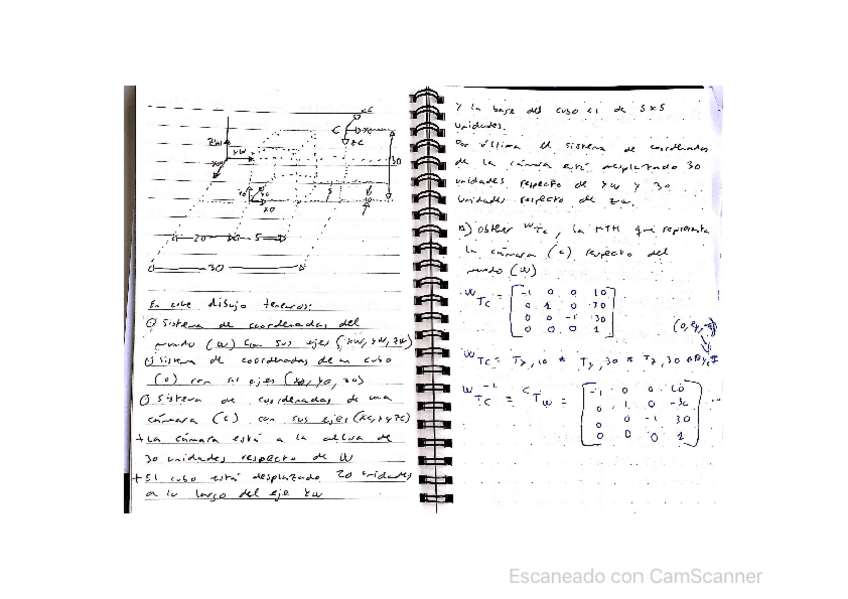 xc
C
xc
zc
zw
yw
xw
30
zo
yo
xo
5
20
5
30
En este dibujo tenemos:
Sistema de coordenadas del
mundo (W) con sus ejes (xw, yw, zw)
Sistema de coordenadas de un cubo
(O) con sus ejes (xo, yo, zo)
Sistema de coordenadas de una
cámara (C) con sus ejes (xc, yc, zc)
+ La cámara está a la altura de
30 unidades respecto de W
+ El cubo está desplazado 20 unidades
a lo largo del eje yw
y la base del cubo es de 5x5
unidades.
Por última el sistema de coordenadas
de la cámara está desplazado 30
unidades respecto de yw y 30
unidades respecto de zw.
a) obtener wTc, la MTH que representa
la cámara (c) respecto del
mundo (w)
WTC = [-1 0 0 10
0 1 0 30
0 0 -1 30
0 0 0 1]
WTC = Tx,10 * Ty,30 * Tz,30 *
WTC⁻¹ = CTW = [-1 0 0 10
0 1 0 -30
0 0 -1 30
0 0 0 1]
Escaneado con CamScanner